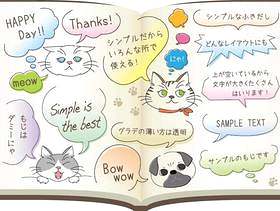 HAPPY
Day!!
Thanks!
meow
シンプルだから
いろんな所で
使える!
にゃ!
シンプルなふきだし
どんなレイアウトにも
上が空いているから
文字が大きくたくさん
はいります!
もじは
ダミーにゃ
Simple is
the best
Bow
wow
グラデの薄い方は透明
SAMPLE TEXT
サンプルのもじです